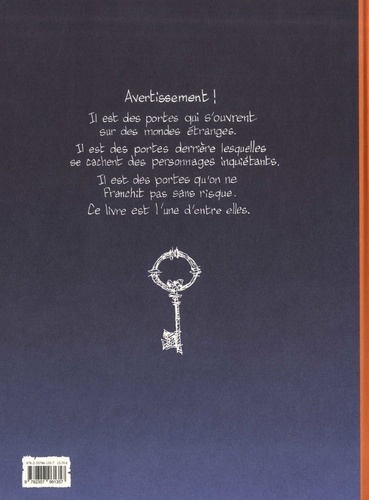 Avertissement !
Il est des portes qui s'ouvrent
sur des mondes étranges.
Il est des portes derrière lesquelles
se cachent des personnages inquiétants.
Il est des portes qu'on ne
franchit pas sans risque.
Ce livre est l'une d'entre elles.